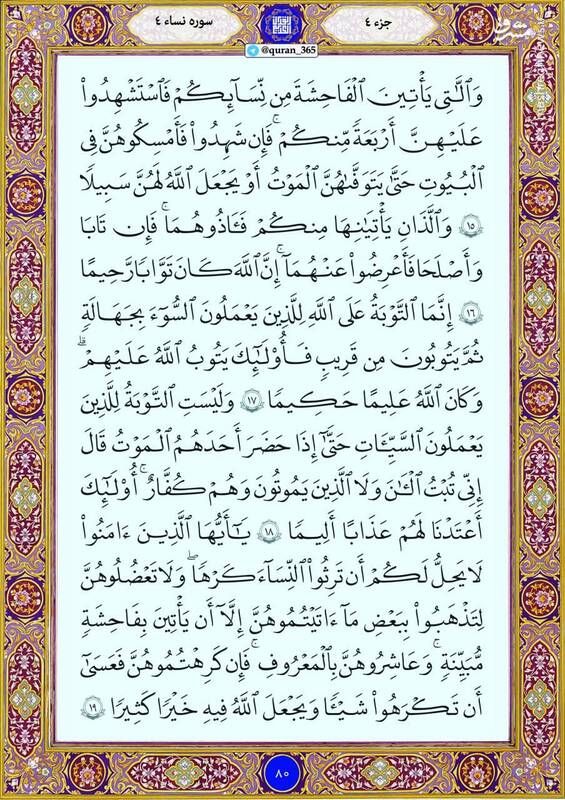 جزء ٤
سوره نساء ٤
مشرق
@quran_365
وَٱلَّٰتِي يَأۡتِينَ ٱلۡفَٰحِشَةَ مِن نِّسَآئِكُمۡ فَٱسۡتَشۡهِدُواْ
عَلَيۡهِنَّ أَرۡبَعَةٗ مِّنكُمۡۖ فَإِن شَهِدُواْ فَأَمۡسِكُوهُنَّ فِي
ٱلۡبُيُوتِ حَتَّىٰ يَتَوَفَّىٰهُنَّ ٱلۡمَوۡتُ أَوۡ يَجۡعَلَ ٱللَّهُ لَهُنَّ سَبِيلٗا
١٥ وَٱلَّذَانِ يَأۡتِيَٰنِهَا مِنكُمۡ فَـَٔاذُوهُمَاۖ فَإِن تَابَا
وَأَصۡلَحَا فَأَعۡرِضُواْ عَنۡهُمَآۗ إِنَّ ٱللَّهَ كَانَ تَوَّابٗا رَّحِيمًا
١٦ إِنَّمَا ٱلتَّوۡبَةُ عَلَى ٱللَّهِ لِلَّذِينَ يَعۡمَلُونَ ٱلسُّوٓءَ بِجَهَٰلَةٖ
ثُمَّ يَتُوبُونَ مِن قَرِيبٖ فَأُوْلَٰٓئِكَ يَتُوبُ ٱللَّهُ عَلَيۡهِمۡۗ
وَكَانَ ٱللَّهُ عَلِيمًا حَكِيمٗا ١٧ وَلَيۡسَتِ ٱلتَّوۡبَةُ لِلَّذِينَ
يَعۡمَلُونَ ٱلسَّيِّـَٔاتِ حَتَّىٰٓ إِذَا حَضَرَ أَحَدَهُمُ ٱلۡمَوۡتُ قَالَ
إِنِّي تُبۡتُ ٱلۡـَٰٔنَ وَلَا ٱلَّذِينَ يَمُوتُونَ وَهُمۡ كُفَّارٌۚ أُوْلَٰٓئِكَ
أَعۡتَدۡنَا لَهُمۡ عَذَابًا أَلِيمٗا ١٨ يَٰٓأَيُّهَا ٱلَّذِينَ ءَامَنُواْ
لَا يَحِلُّ لَكُمۡ أَن تَرِثُواْ ٱلنِّسَآءَ كَرۡهٗاۖ وَلَا تَعۡضُلُوهُنَّ
لِتَذۡهَبُواْ بِبَعۡضِ مَآ ءَاتَيۡتُمُوهُنَّ إِلَّآ أَن يَأۡتِينَ بِفَٰحِشَةٖ
مُّبَيِّنَةٖۚ وَعَاشِرُوهُنَّ بِٱلۡمَعۡرُوفِۚ فَإِن كَرِهۡتُمُوهُنَّ فَعَسَىٰٓ
أَن تَكۡرَهُواْ شَيۡـٔٗا وَيَجۡعَلَ ٱللَّهُ فِيهِ خَيۡرٗا كَثِيرٗا ١٩
٨٠